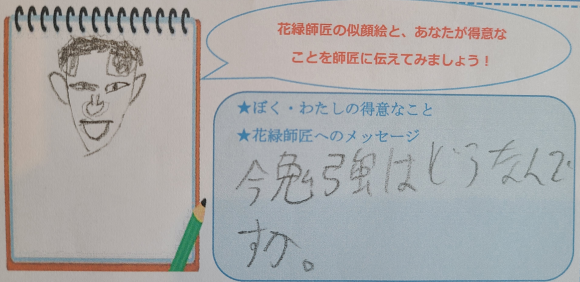 花緑師匠の似顔絵と、あなたが得意な
ことを師匠に伝えてみましょう！
★ぼく・わたしの得意なこと
★花緑師匠へのメッセージ
今勉強はどうなんで
すか。